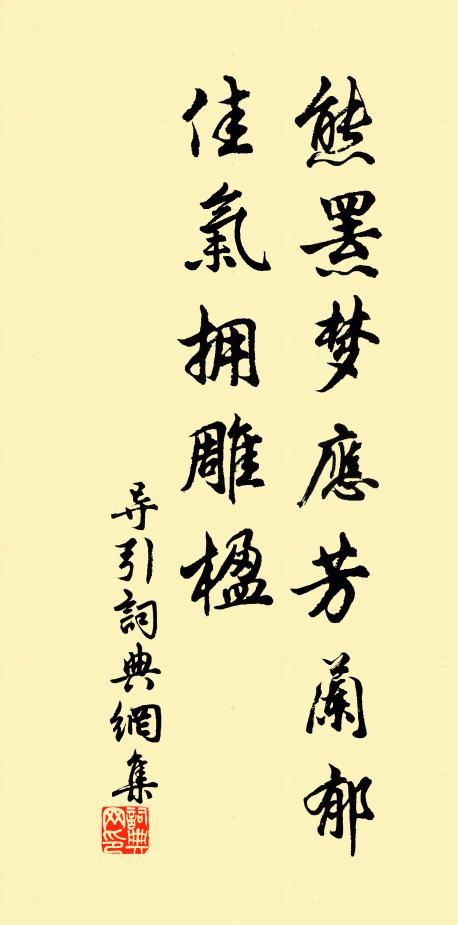 熊羆梦應芳蘭郁
佳氣拥雕楹
导引詞典網集
詞典网印